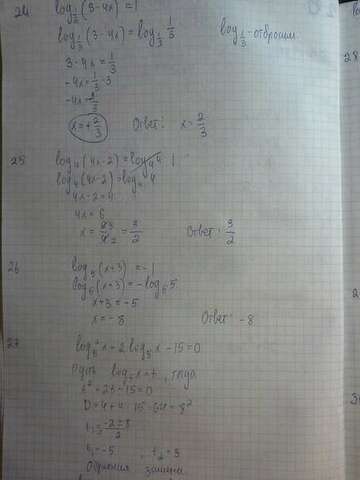 24 log_{1/3}(3-4x)=1
log_{1/3}(3-4x)=log_{1/3} 1/3 log_{1/3}-отбросим
3-4x=1/3
-4x=1/3-3
x=+2/3 Ответ: x=2/3
25 log_4(4x-2)=1
log_4(4x-2)=log_4 4
4x-2=4
4x=6
x=6/4=3/2 Ответ: 3/2
26 log_5(x+3)=-1
log_5(x+3)=-log_5 5
x+3=-5
x=-8 Ответ: -8
27 log_5^2 x-2log_5 x-15=0
Пусть log_5 x=t, тогда
t^2-2t-15=0
D=4+4·15=64=8^2
t_1=-5, t_2=3
замена